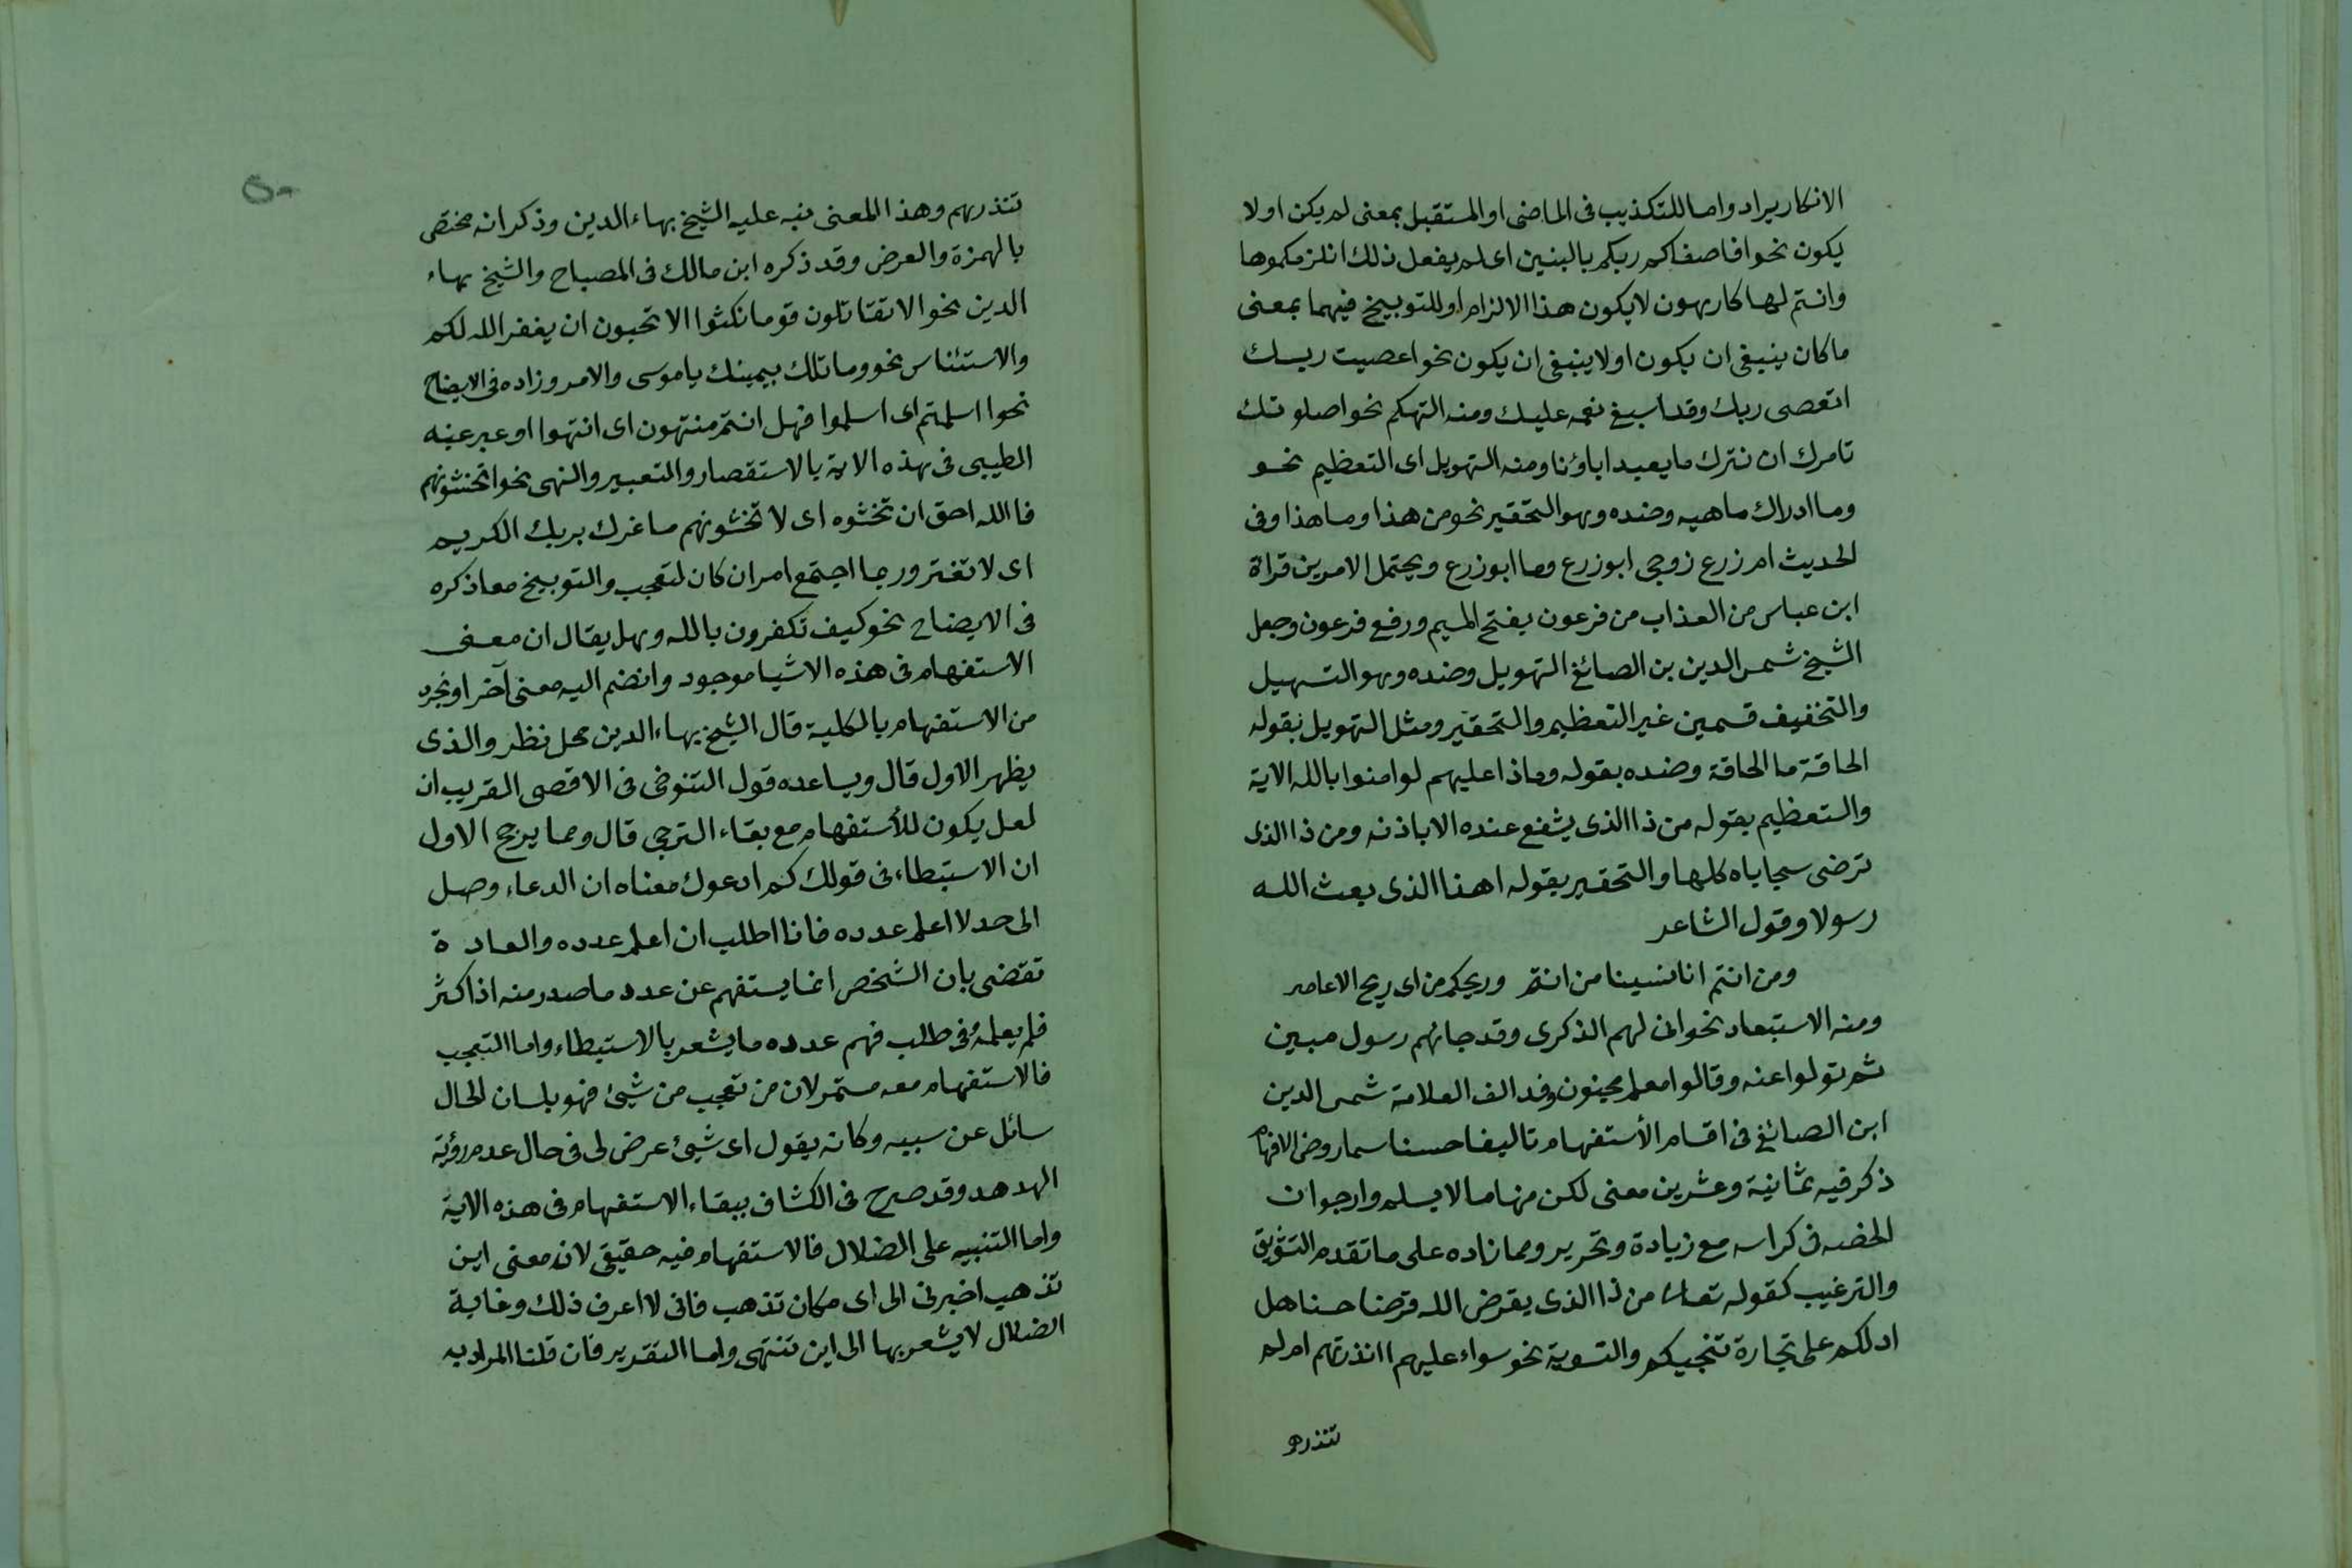 الانكار يراد واما للتكذيب فى الماضى او المستقبل بمعنى لم يكن او لا
يكون نحو افاصفاكم ربكم بالبنين اى لم يفعل ذلك انلزمكموها
وانتم لها كارهون لا يكون هذا الالزام او للتوبيخ فيهما بمعنى
ما كان ينبغى ان يكون او لا ينبغى ان يكون نحو اعصيت ربك
اتعصى ربك وقد اسبغ نعمه عليك ومنه التهكم نحو اصلوتك
تامرك ان نترك ما يعبد اباؤنا ومنه التهويل اى التعظيم نحو
وما ادراك ماهيه وضده وهو التحقير نحو من هذا وما هذا وفى
الحديث ام زرع زوجى ابوزرع وما ابوزرع ويحتمل الامرين قراة
ابن عباس من العذاب من فرعون بفتح الميم ورفع فرعون وجعل
الشيخ شمس الدين بن الصائغ التهويل وضده وهو التسهيل
والتخفيف قسمين غير التعظيم والتحقير ومثل التهويل بقوله
الحاقة ما الحاقة وضده بقوله وماذا عليهم لو امنوا بالله الاية
والتعظيم بقوله من ذا الذى يشفع عنده الا باذنه ومن ذا الذى
ترضى سجاياه كلها والتحقير بقوله اهذا الذى بعث الله
رسولا وقول الشاعر
ومن انتم انا نسينا من انتم وريحكم من اى ريح الاعاصر
ومنه الاستبعاد نحو انى لهم الذكرى وقد جائهم رسول مبين
ثم تولوا عنه وقالوا معلم مجنون وقد الف العلامة شمس الدين
ابن الصائغ فى اقسام الأستفهام تاليفا حسنا سماه روض الافهام
ذكر فيه ثمانية وعشرين معنى لكن منها ما لا يسلم وارجو ان
الخصه فى كراسه مع زيادة وتحرير ومما زاده على ما تقدم التشويق
والترغيب كقوله تعالى من ذا الذى يقرض الله قرضا حسنا هل
ادلكم على تجارة تنجيكم والتسوية نحو سواء عليهم اانذرتهم ام لم
تنذرهم
٥٠
تنذرهم وهذا المعنى نبه عليه الشيخ بهاء الدين وذكر انه مختص
بالهمزة والعرض وقد ذكره ابن مالك فى المصباح والشيخ بهاء
الدين نحو الا تقاتلون قوما نكثوا الا تحبون ان يغفر الله لكم
والاستئناس نحو وما تلك بيمينك ياموسى والامر وزاده فى الايضاح
نحو ااسلمتم اى اسلموا فهل انتم منتهون اى انتهوا او عبر عنه
الطيبى فى هذه الاية بالاستقصار والتعبير والنهى نحو اتخشونهم
فالله احق ان تخشوه اى لا تخشونهم ما غرك بربك الكريم
اى لا تغتر وربما اجتمع امران كان لتعجب والتوبيخ معا ذكره
فى الايضاح نحو كيف تكفرون بالله وهل يقال ان معنى
الاستفهام فى هذه الاشيا موجود وانضم اليه معنى آخر او تجرد
من الاستفهام بالكلية قال الشيخ بهاء الدين محل نظر والذى
يظهر الاول قال ويساعده قول التنوخى فى الاقصى القريب ان
لعل يكون للأستفهام مع بقاء الترجى قال ومما يرجح الاول
ان الاستبطاء فى قولك كم ادعوك معناه ان الدعاء وصل
الى حد لا اعلم عدده فانا اطلب ان اعلم عدده والعادة
تقضى بان الشخص انما يستفهم عن عدد ما صدر منه اذا كثر
فلم يعلمه وفى طلب فهم عدده ما يشعر بالاستبطاء واما التعجب
فالاستفهام معه مستمر لان من تعجب من شيئ فهو بلسان الحال
سائل عن سببه وكانه يقول اى شيئ عرض لى فى حال عدم رؤية
الهدهد وقد صرح فى الكشاف ببقاء الاستفهام فى هذه الاية
واما التنبيه على الضلال فالاستفهام فيه حقيقى لان معنى اين
تذهب اخبرنى الى اى مكان تذهب فانى لا اعرف ذلك وغاية
الضلال لا يشعر بها الى اين تنتهى واما التقدير فان قلنا المراد به